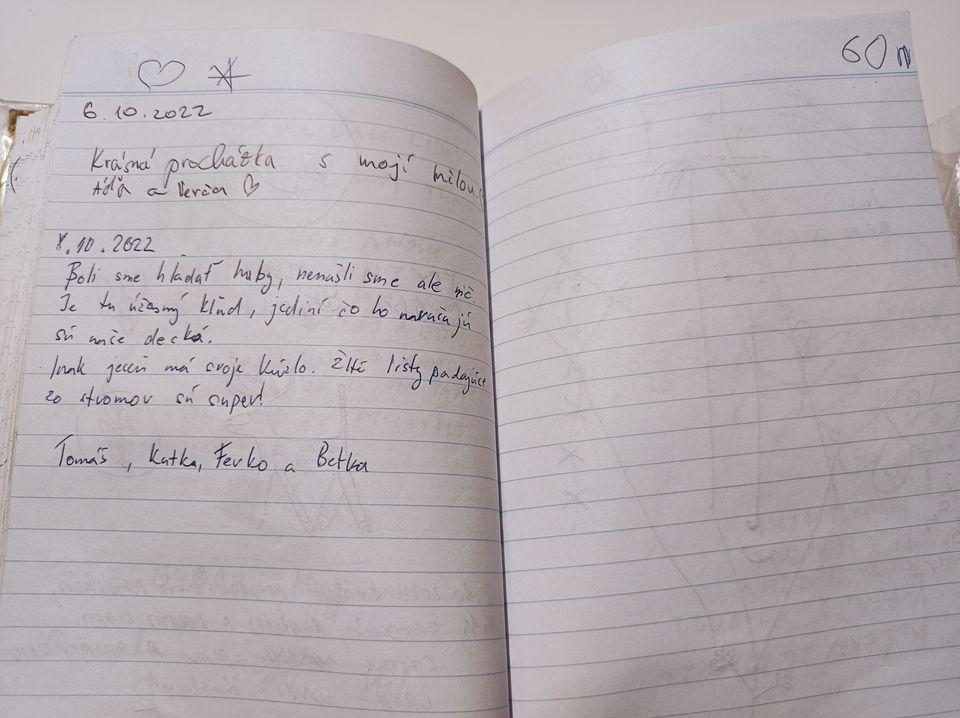 6.10.2022
Krásná procházka s mojí milou
a Verča
8.10.2022
Boli sme hľadať huby, nenašli sme ale nič.
Je tu úžasný kľud, jediní čo ho narúšajú
sú naše decká.
Inak jeseň má svoje kúzlo. Žlté listy padajúce
zo stromov sú super!
Tomáš, Katka, Ferko a Betka
60